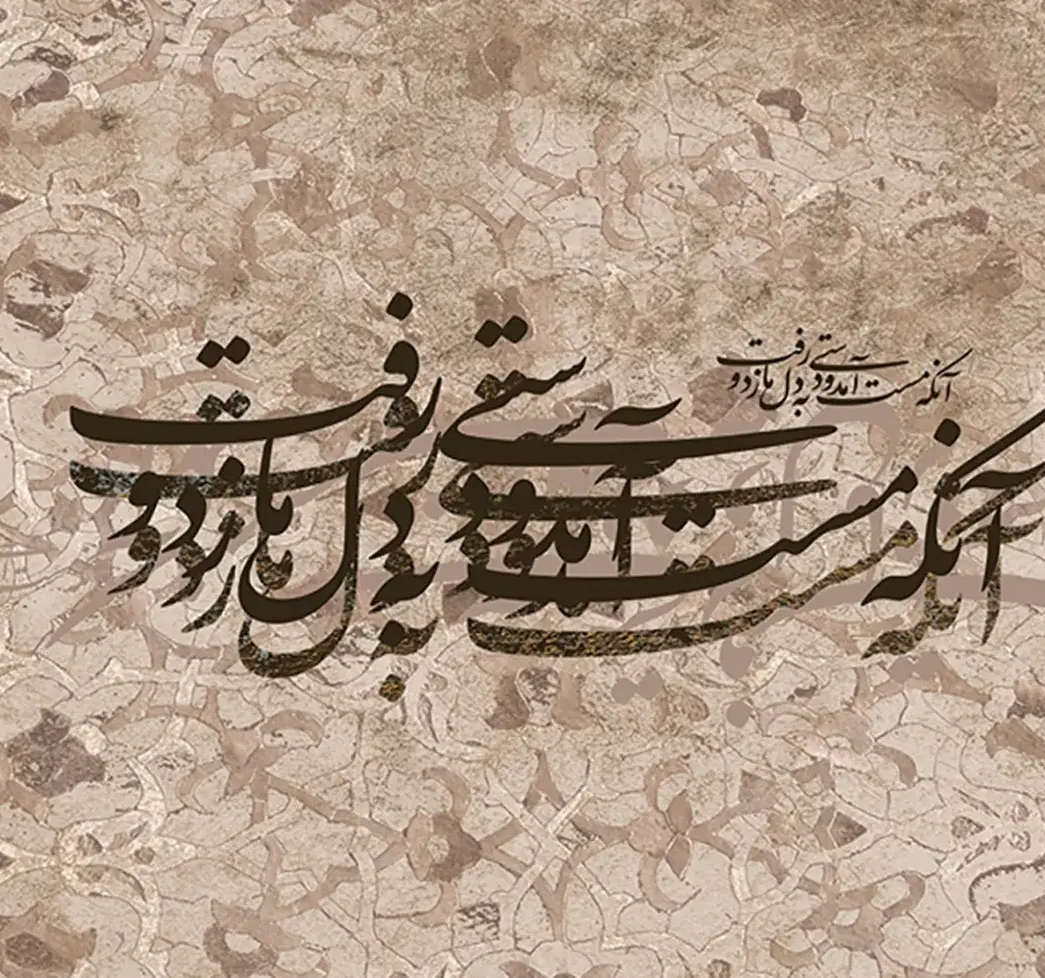 آنکه مست آمد و دستی به دل ما زد و رفت
آنکه مست آمد و دستی به دل ما زد و رفت